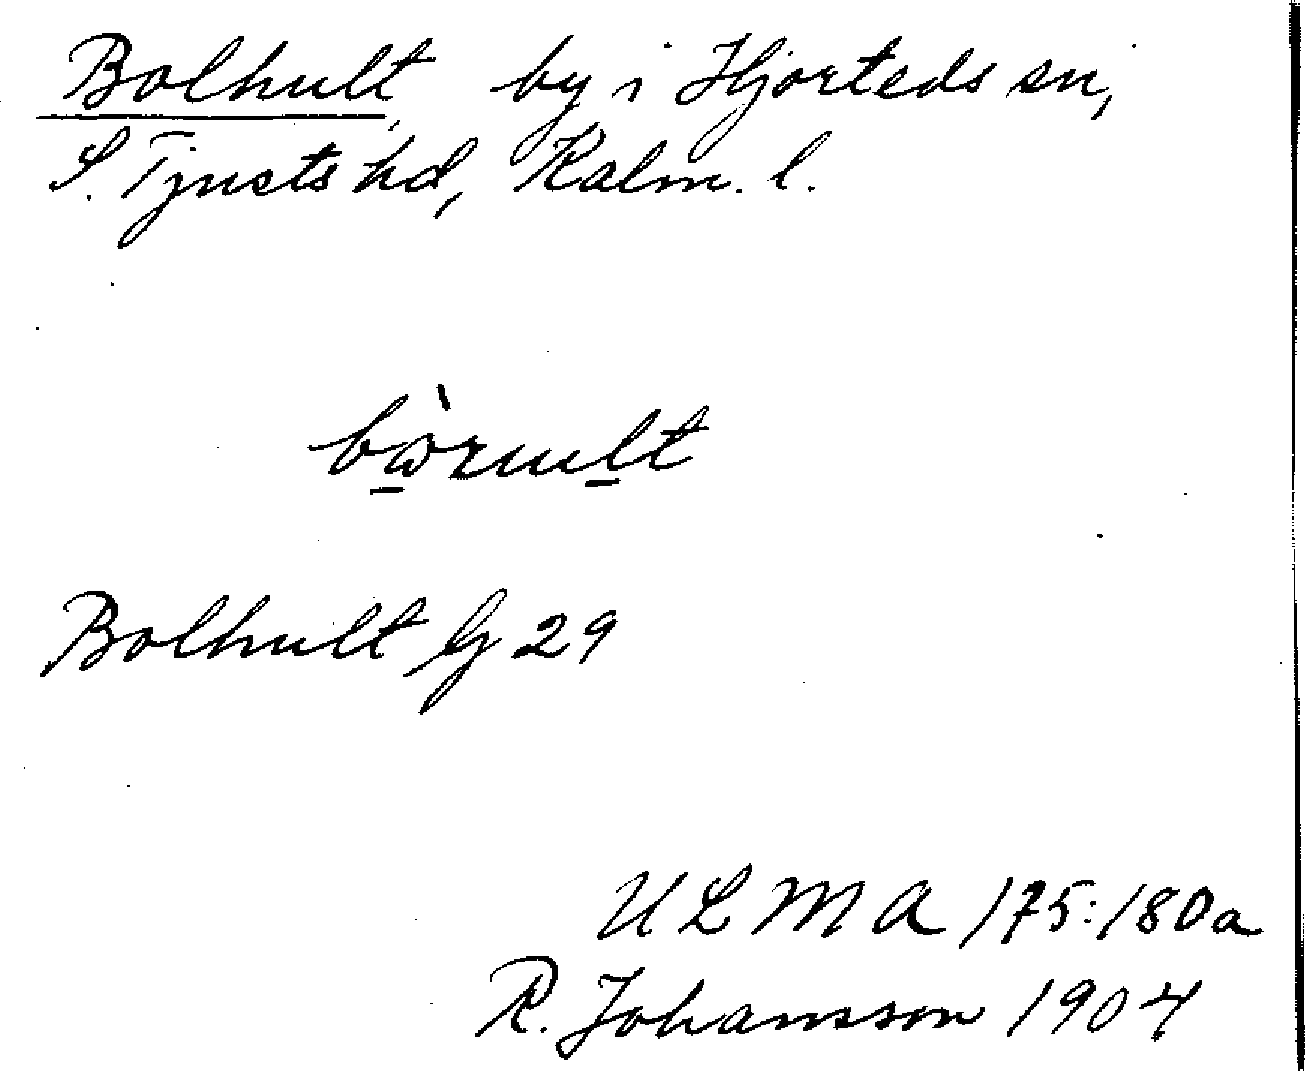 Bolhult, by i Hjorteds sn,
S. Tjusts hd, Kalm. l.
Bolhult G 29
ULMA 175:180a
R. Johansson 1904